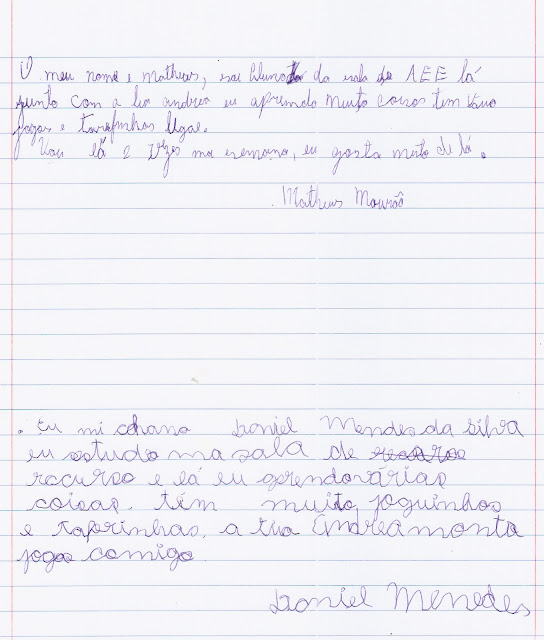 O meu nome e Matheus, sou aluno da sala de AEE lá
junto com a tia andrea eu aprendo muito coisas tem vario
jogos e tarefinhas legae.
Vou lá 2 vezes na semana, eu gosta muto de lá.
Matheus Mourão
. Eu mi chano Daniel Mendes da Silva
eu estudo na sala de
recurso e lá eu aprendo várias
coisas. têm muito joguinhos
e taprinhas. a tia Andrea monta
jogos comigo
Daniel Menedes